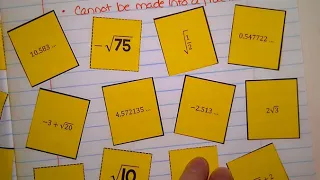 Cannot be made into a
10.583...
-√75
0.547722...
-3 + √20
4.572135...
-2.513...
2√3
√10